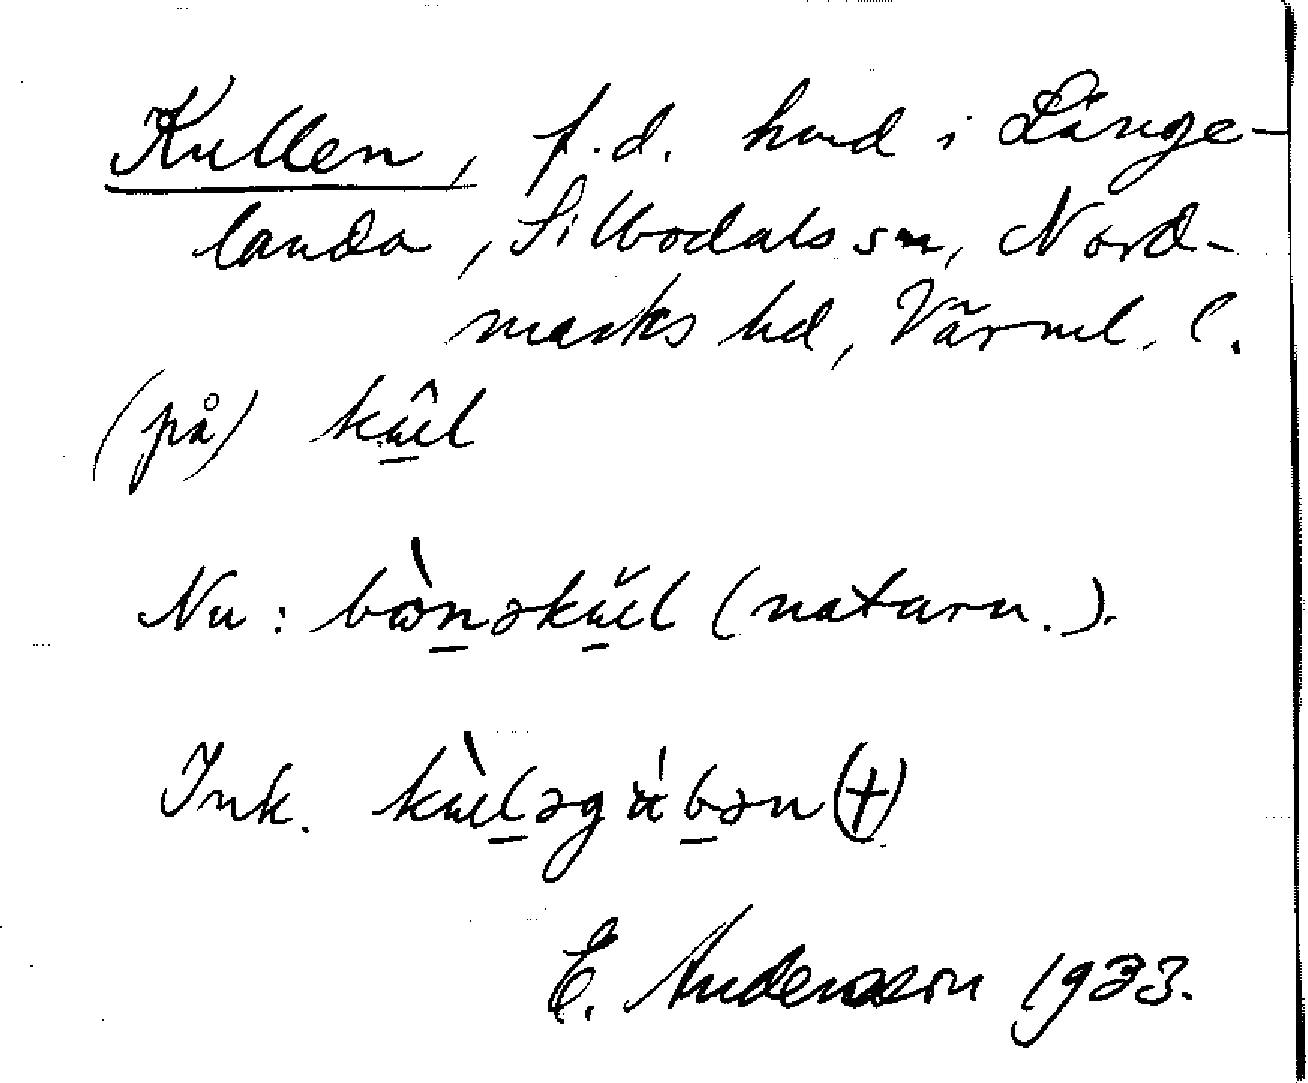 Kullen, f.d. hmd i Länge-
landa, Silbodals sn, Nord-
marks hd, Värml. l.
(på) kûl
Nu: bòn̠əkŭl (naturn.).
Ink. kùl̠əgúb̠ən (+)
E. Andersson 1933.